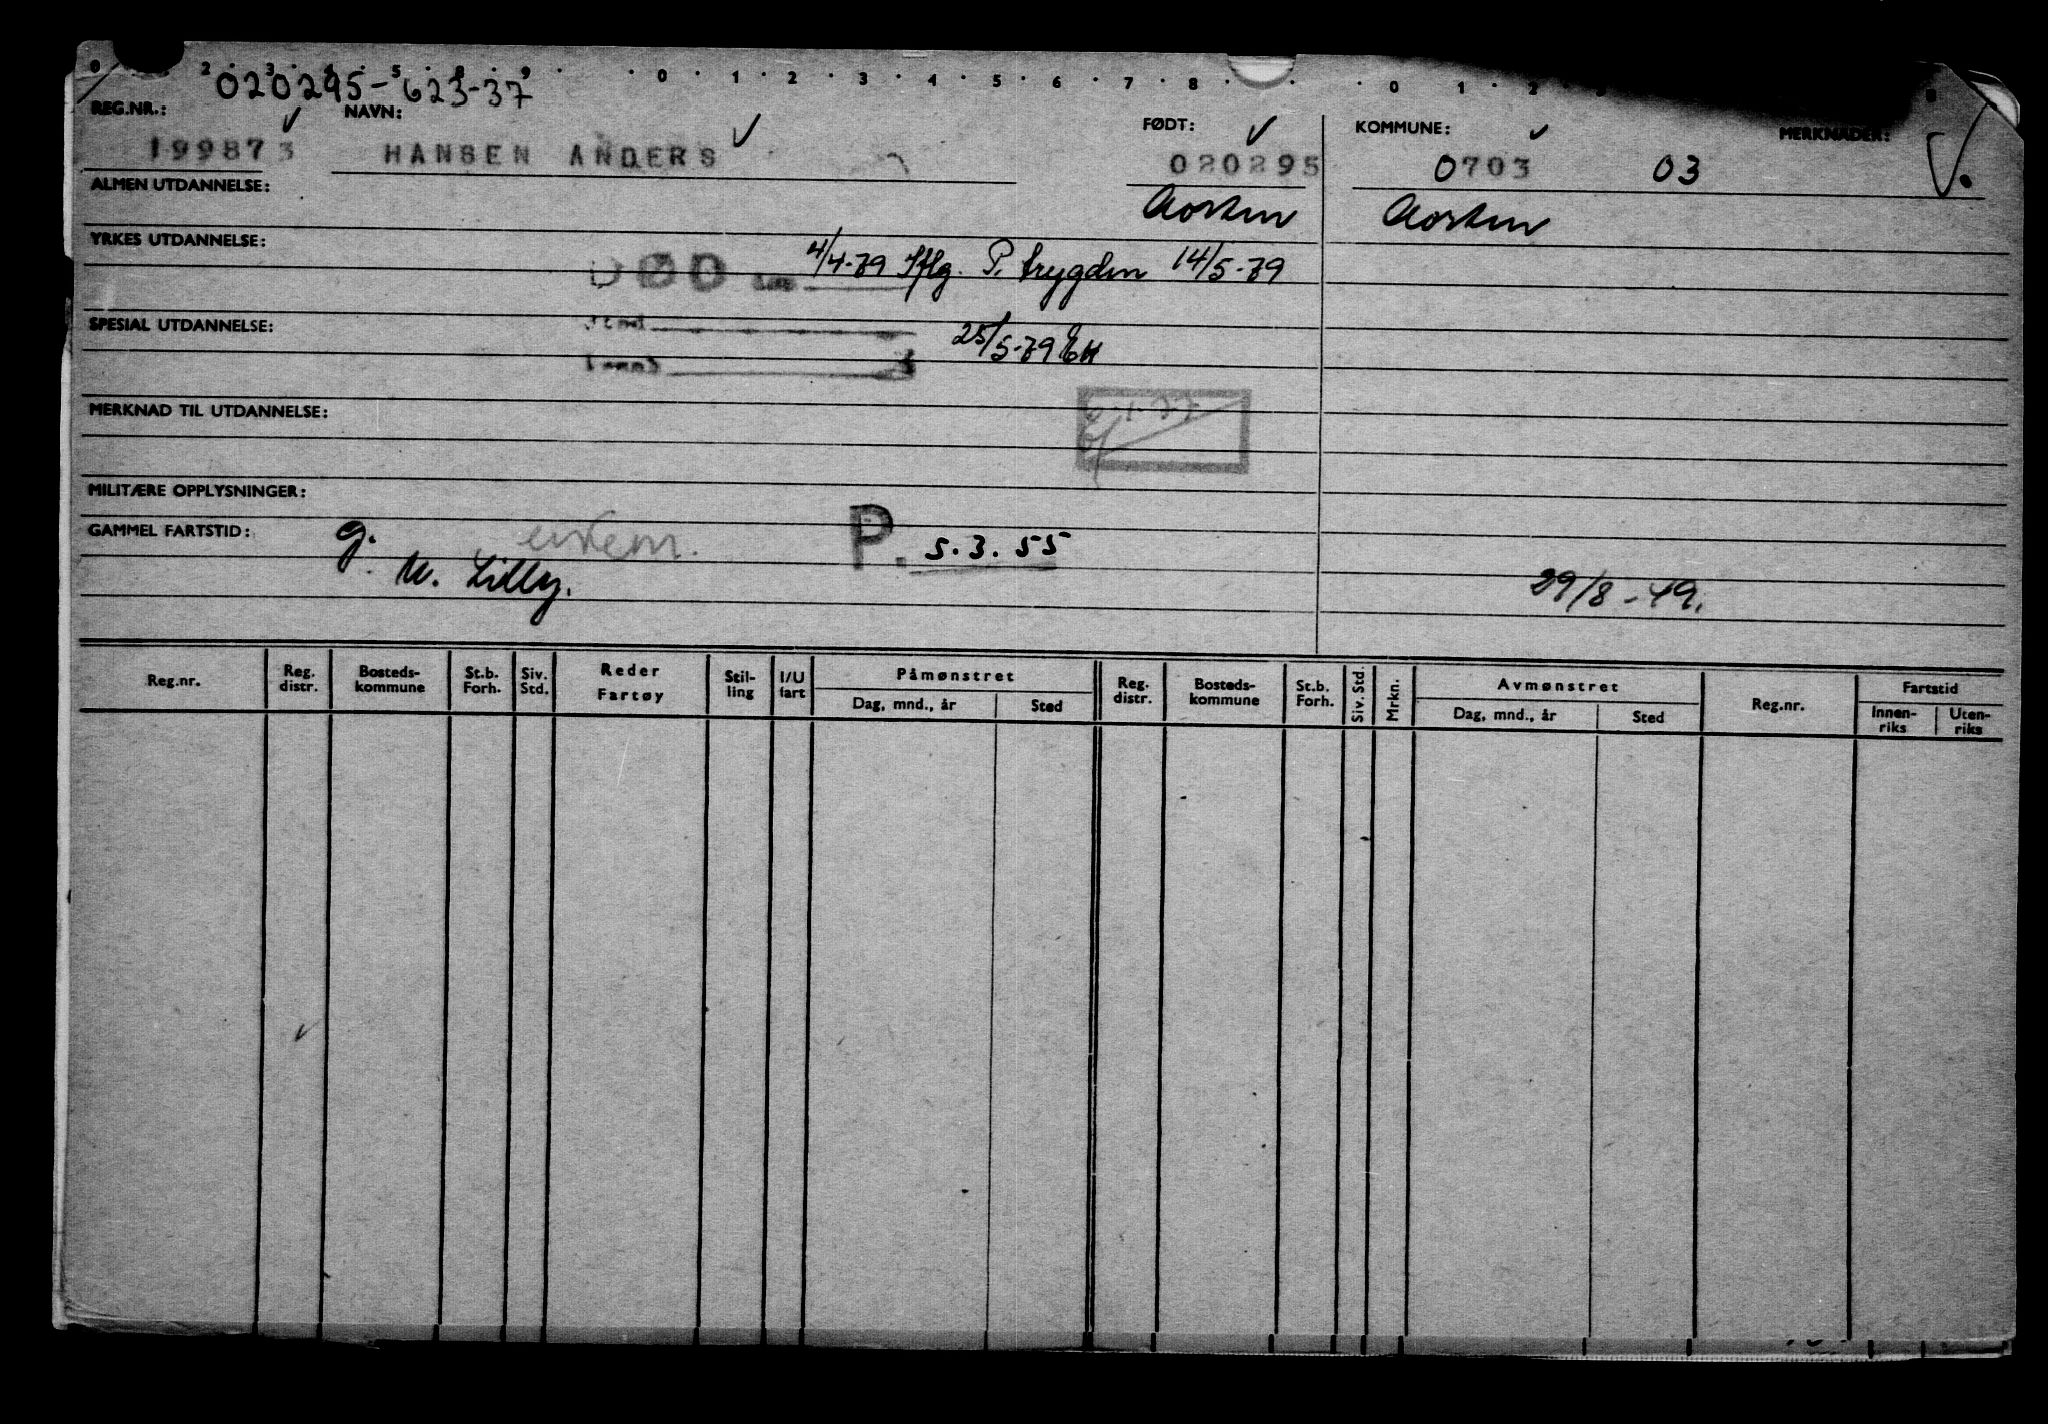 0 2 3 5 8 9 0 1 2 3 4 5 6 7 8 0 1 2
020295-623-37
REG.NR.: NAVN: FØDT: KOMMUNE: MERKNADER:
199873 HANSEN ANDERS 020295 0703 03
ALMEN UTDANNELSE:
Horten Horten
YRKES UTDANNELSE:
DØD den 4/4-79 Iflg. P. trygden 14/5-79
SPESIAL UTDANNELSE:
Sted
25/5-79
MERKNAD TIL UTDANNELSE:
MILITÆRE OPPLYSNINGER:
GAMMEL FARTSTID: g. P. 5.3.55
M. Lilly. 29/8-49.
Reg.nr. Reg. distr. Bosteds-kommune St.b. Forh. Siv. Std. Reder Fartøy Stil-ling I/U fart Påmønstret Reg. distr. Bosteds-kommune St.b. Forh. Siv. Std. Mrkn. Avmønstret Reg.nr. Fartstid
Dag, mnd., år Sted Dag, mnd., år Sted Innen-riks Uten-riks